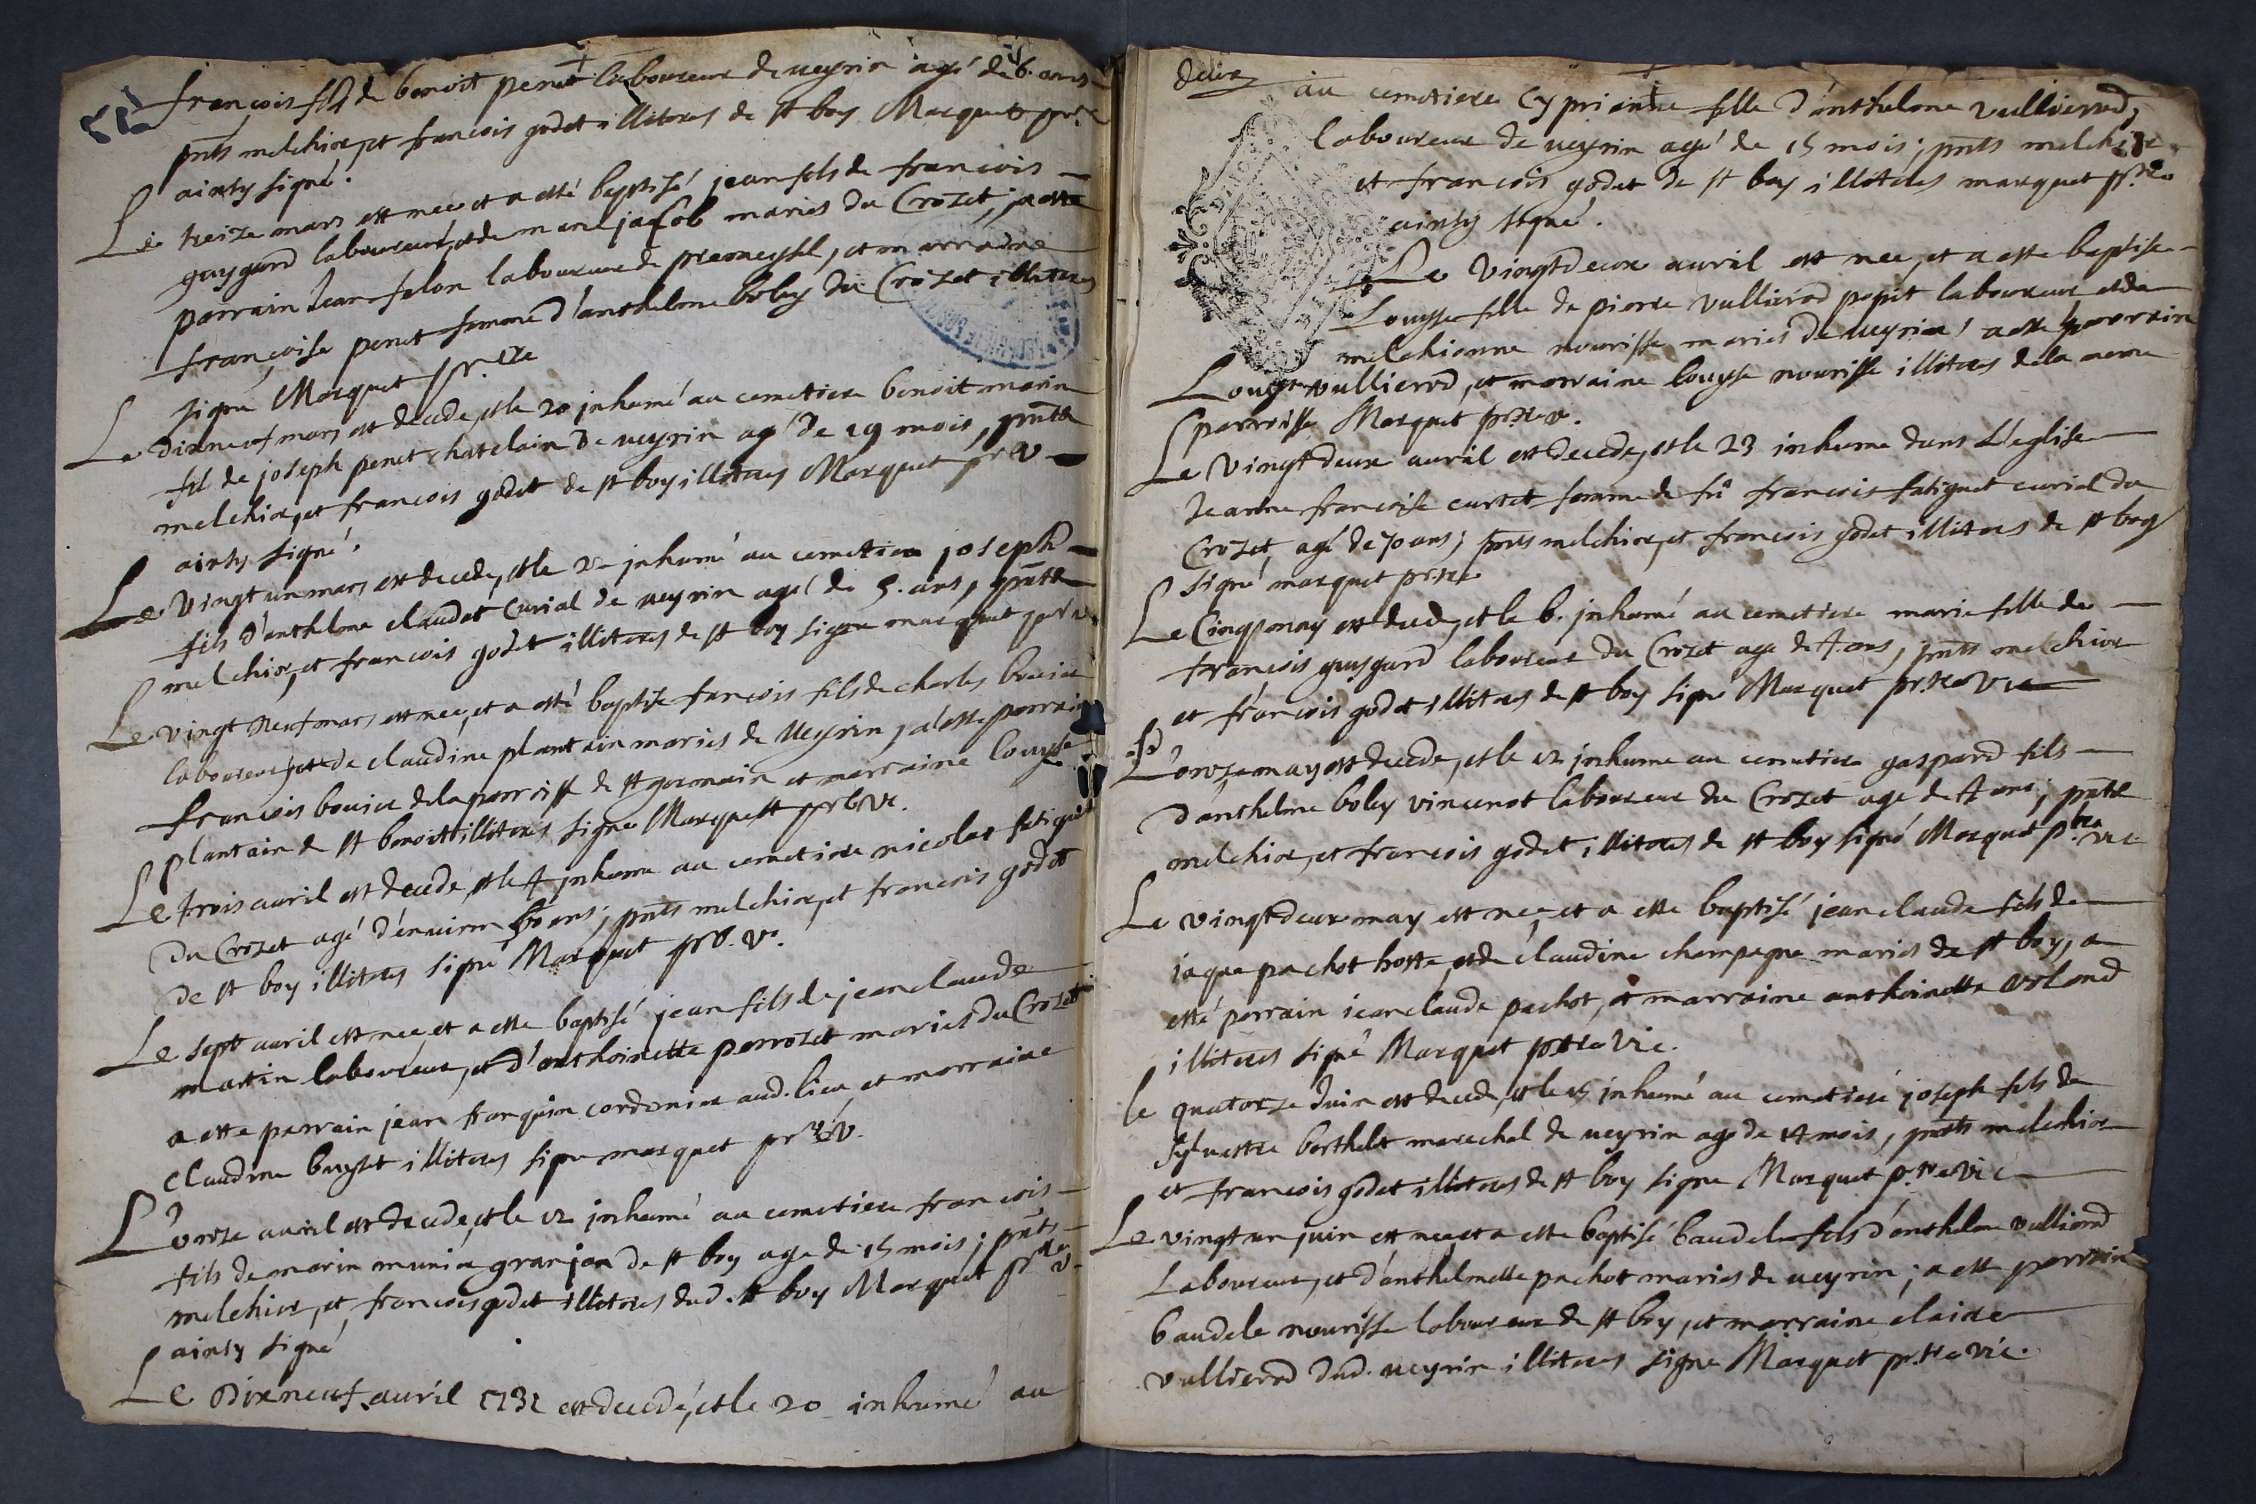 françois fils de benoit penet laboureur de veyrin agé de 6. ans
pnts melchior, et francois godet illiteres de st boy Marquet ptre
ainsy signé.
Le treize mars est nee et a esté baptisé jean fils de francois
guygard laboureur, et de marie jacob maries du Crozet, a esté
parrain Jean felon laboureur de premeysel, et marraine
françoise penet femme d'anthelme boley du Crozet illiteres
signé Marquet ptre
Le dixneuf mars est decede, et le 20 inhumé au cemetiere benoit marin
fil de joseph penet chatelain de veyrin agé de 19 mois, pnts
melchior, et francois godet de st boy illiteres Marquet ptre v
ainsy signé.
Le vingt un mars est decede, et le 22 inhumé au cemetiere joseph
fils d'anthelme claudet Curial de veyrin agé de 5. ans, pnts
melchior, et francois godet illiteres de st boy signé marquet ptre v
Le vingt neuf mars est nee, et a esté baptisé francois fils de charles bouier
laboureur, et de claudine plantain maries de Veyrin, a esté parrain
francois bouier de la parroisse de st germain et marraine louyse
plantain de st benoitt illiteres signé Marquett ptre vic.
Le trois avril est decede, et le 4 inhumé au cemetiere nicolas fatiguet
du Crozet agé d'environ ans; pnts melchior, et francois godet
de st boy illiteres signé Marquet ptre. v.
Le sept avril est nee, et a esté baptisé jean fils de jean claude
martin laboureur, et d'anthoinette perrozet maries du Crozet
a esté parrain jean franquin cordonier aud. lieu, et marraine
claudine buyset illiteres signé marquet ptre v.
L'onze avril est decede, et le 12 inhumé au cemetiere francois
fils de marin munier granjon de st boy agé de 15 mois; pnts
melchior, et francois godet illiteres dud. st boy Marquet ptre v
ainsy signé
Le Dixneuf avril 1731 est decedé, et le 20 inhumé au
deux
au cemetiere Cyprianne fille d'anthelme vullierod,
laboureur de veyrin agé de 15 mois; pnts melchior
et francois godet de st boy illiteres marquet ptre
ainsy signé.
Le Vingtdeux avril est nee, et a esté baptisee
Louyse fille de pierre vullierod popit laboureur et de
melchionne nourisse maries de veyrin, a esté parrain
Louys vullierod, et marraine louyse nourisse illiteres de la meme
parroisse Marquet ptre v.
Le Vingtdeux avril est decede, et le 23 inhume dans L'eglise
Jeanne francoise curtet femme de francois fatiguet curial du
Crozet agé de 70 ans; pnts melchior, et francois godet illiteres de st boy
signé marquet ptre
Le Cinq may est decede, et le 6. inhumé au cemetiere marie fille de
francois guygard laboureur du Crozet age de 4. ans, pnts melchior
et francois godet illiteres de st boy signé Marquet ptre vic
L'onze may est decede, et le 12 inhume au cemetiere gaspard fils
d'anthelme boley vincenot laboureur du Crozet agé de 4 ans, pnts
melchior, et francois godet illiteres de st boy signé Marquet ptre vic
Le vingtdeux may est nee, et a esté baptisé jean claude fils de
jaque pachot hoste, et de claudine champagne maries de st boy, a
esté parrain jean claude pachot, et marraine anthoinette orland
illiteres signé Marquet ptre vic.
le quatorze Juin est decede, et le 15 inhumé au cemetiere joseph fils de
sylvestre berthelet marechal de veyrin age de 14 mois, pnts melchior
et francois godet illiteres de st boy signe Marquet ptre vic
Le vingt un juin est nee et a esté baptisé baudel fils d'anthelme vullierod
Laboureur, et d'anthelmette pachot maries de veyrin; a esté parrain
baudele nourisse laboureur de st boy, et marraine claire
vullierod dud. veyrin illiteres signe Marquet ptre vic.